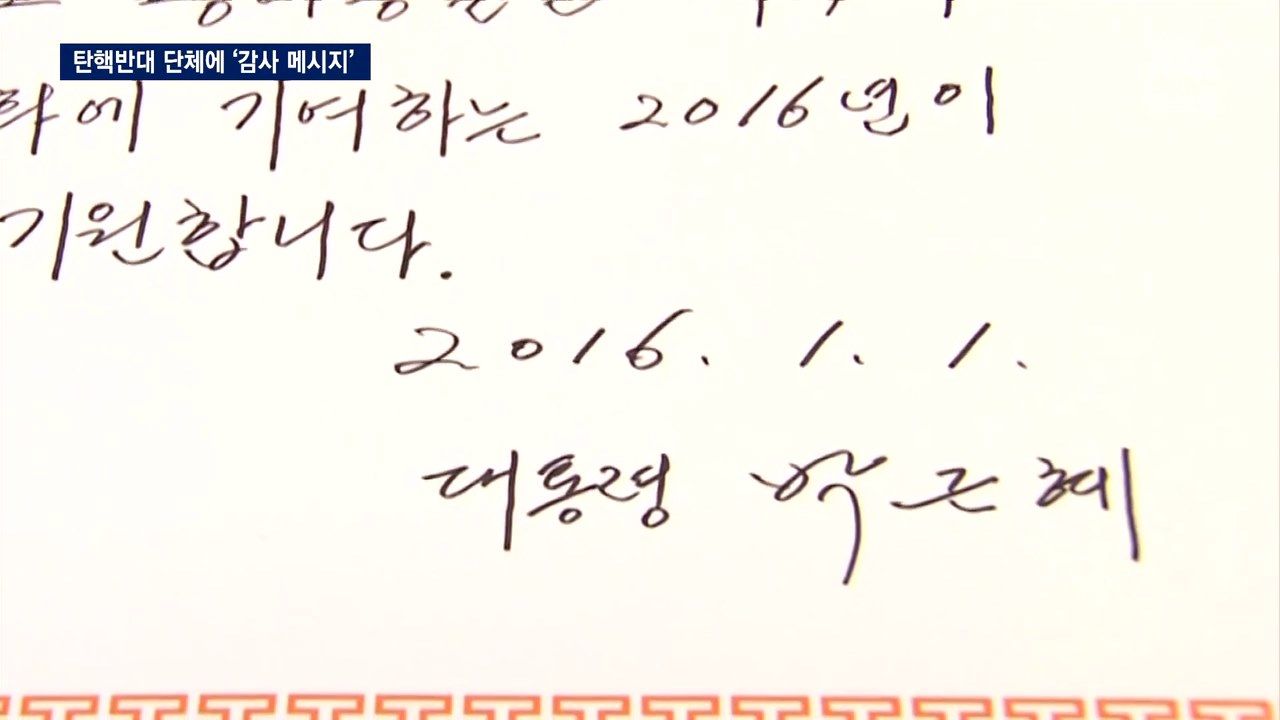 탄핵반대 단체에 ‘감사 메시지’
에 기여하는 2016년이
기원합니다.
2016. 1. 1.
대통령 박근혜